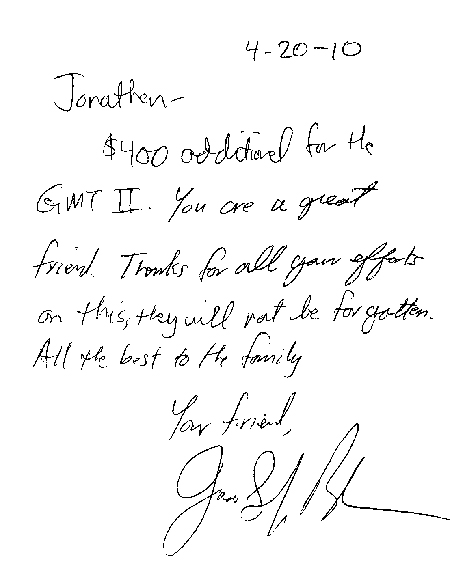 4-20-10
Jonathan-
$400 additional for the
GMT II. You are a great
friend. Thanks for all your efforts
on this, they will not be forgotten.
All the best to the family
Your friend,